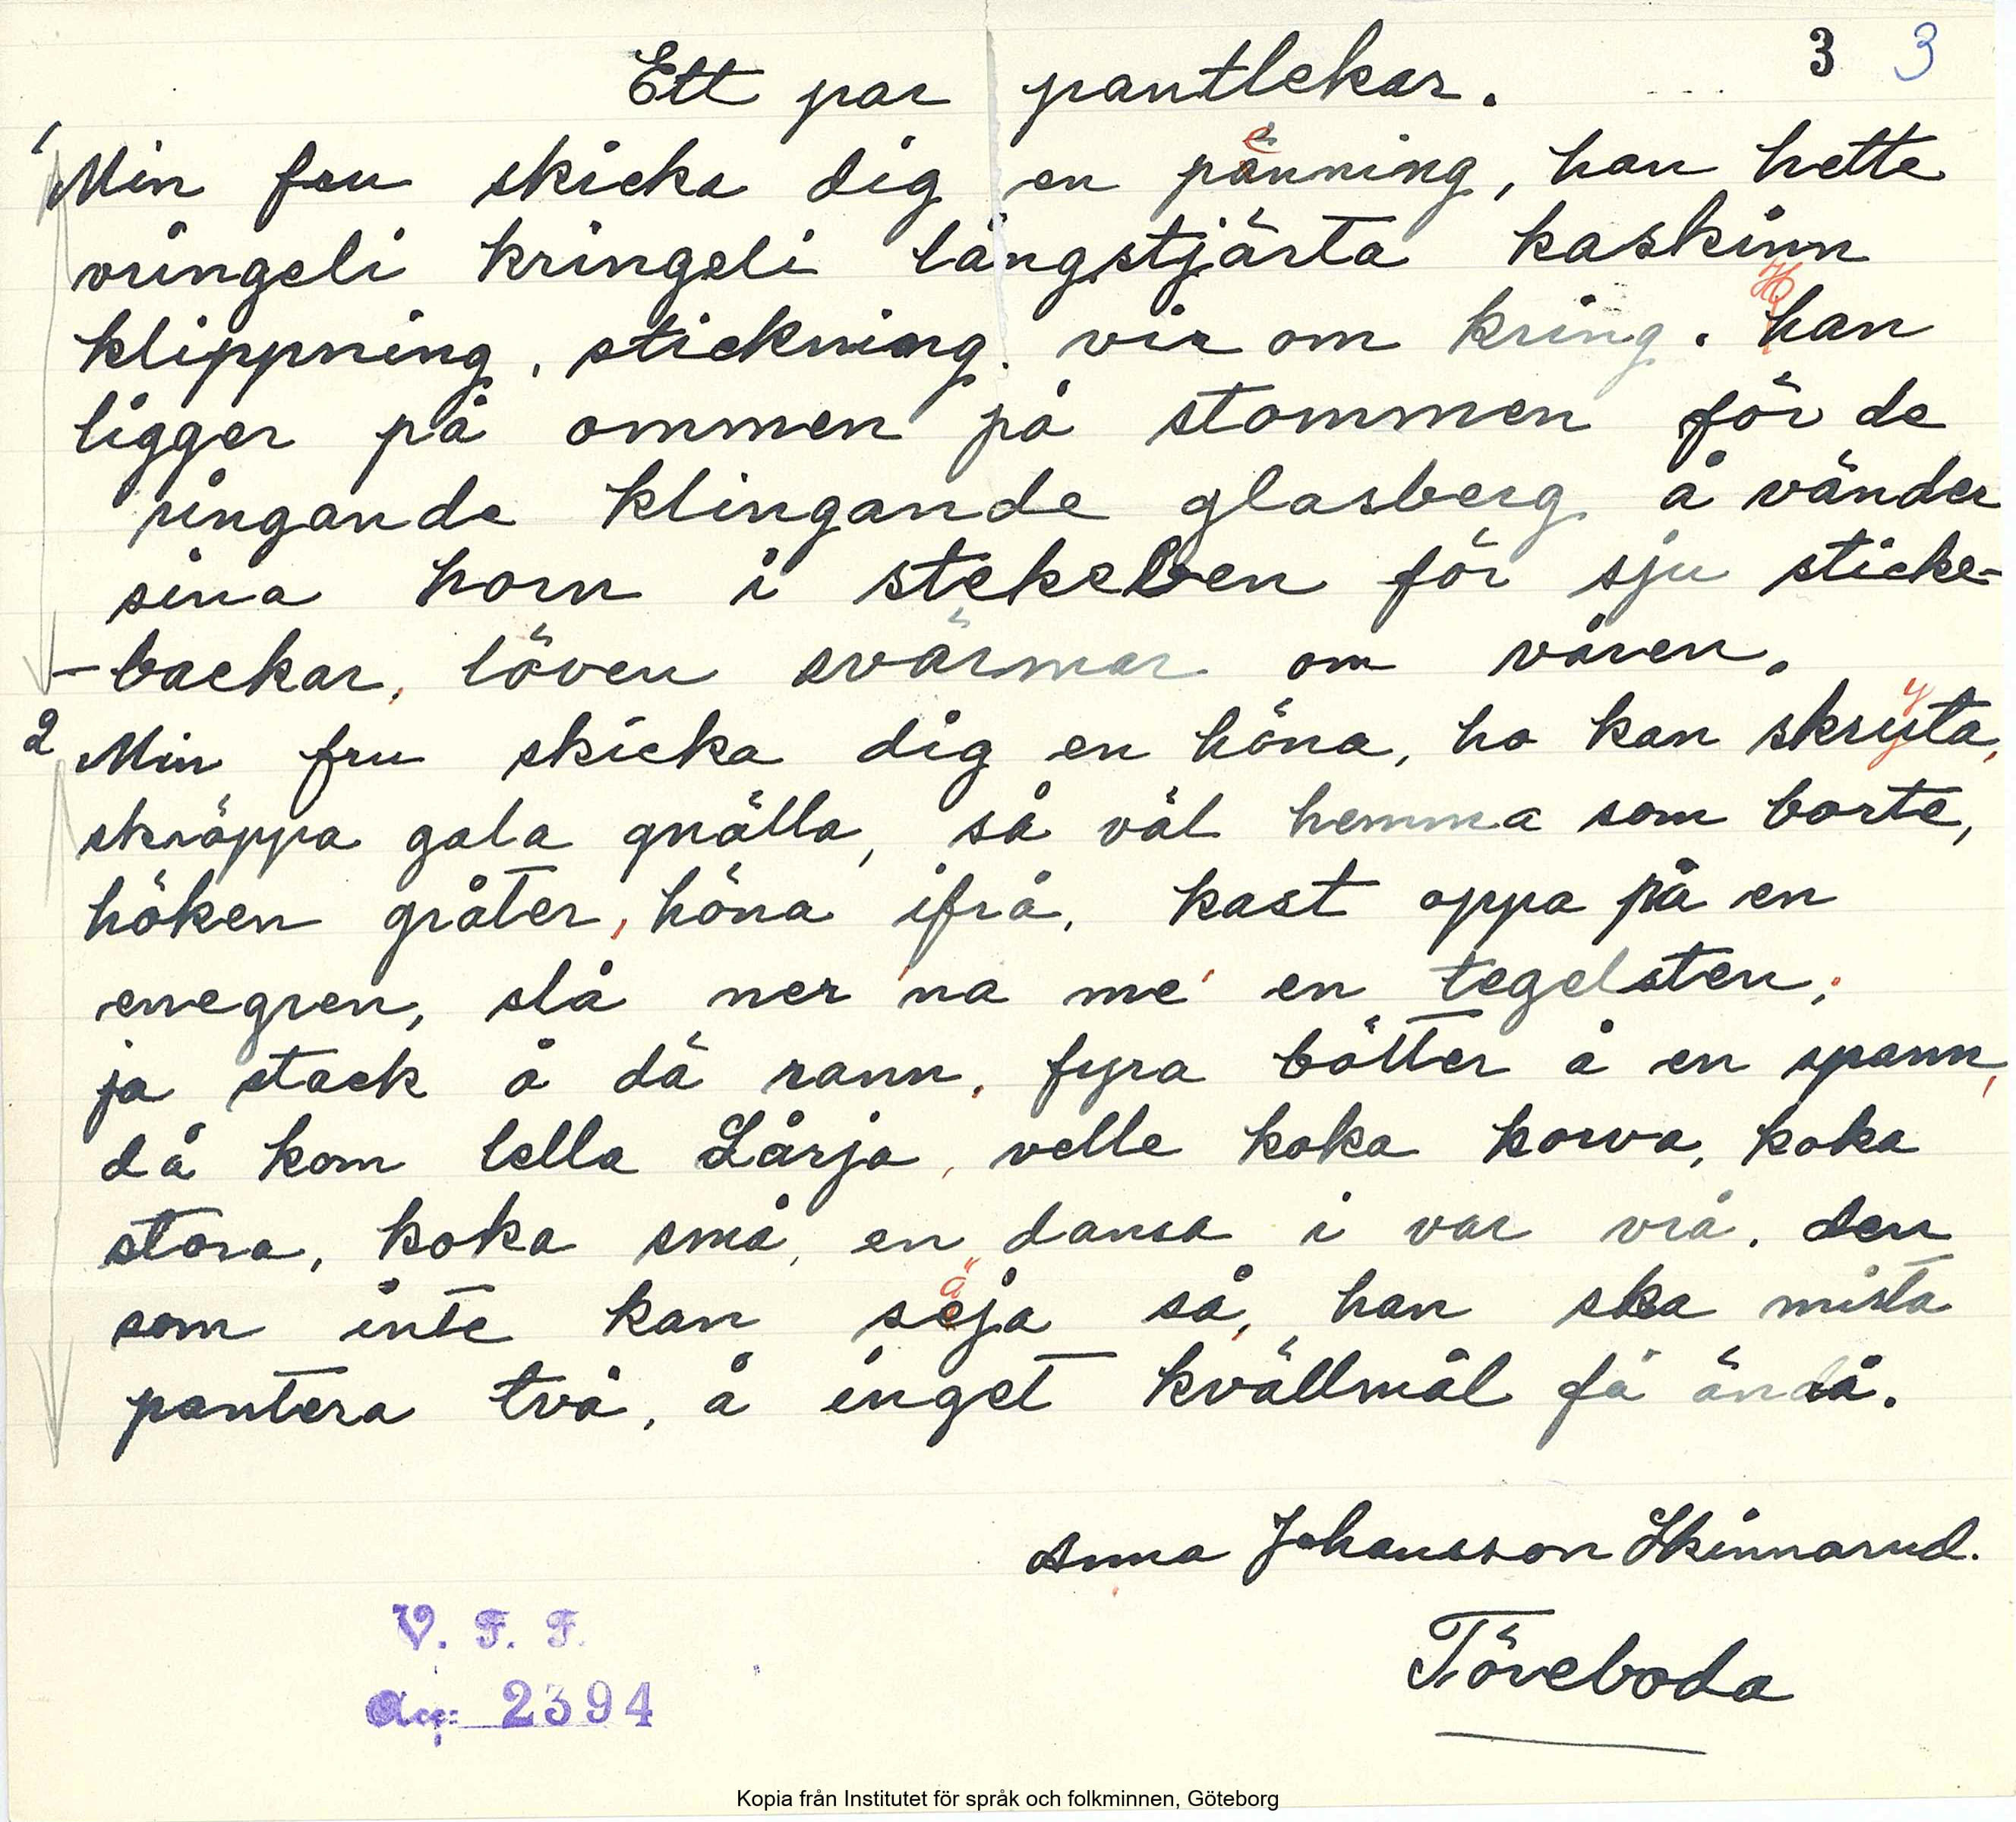 3 3
Ett par pantlekar.
1 Min fru skicka dig en pänning, han hette
vringeli kringeli långstjärta kaskinn
klippning, stickning. vir om kring. han
ligger på ommen på stommen för de
ringande klingande glasberg å vänder
sina horn i stekelben för sju sticke-
-backar, löven svärmar om våren.
2 Min fru skicka dig en höna, ho kan skryta,
skräppa gala gnälla, så väl hemma som borte,
höken gråter, höna ifrå, kast oppa på en
enegren, slå ner 'na me' en tegelsten,
ja stack å dä rann, fyra bötter å en spann,
då kom lella Lårja, velle koka korva, koka
stora, koka små, en dansa i var vrå. den
som inte kan säja så, han ska mista
pantera två, å inget kvällmål få ändå.
Anna Johansson Skinnarud.
Töreboda
V. F. F.
2394
Kopia från Institutet för språk och folkminnen, Göteborg